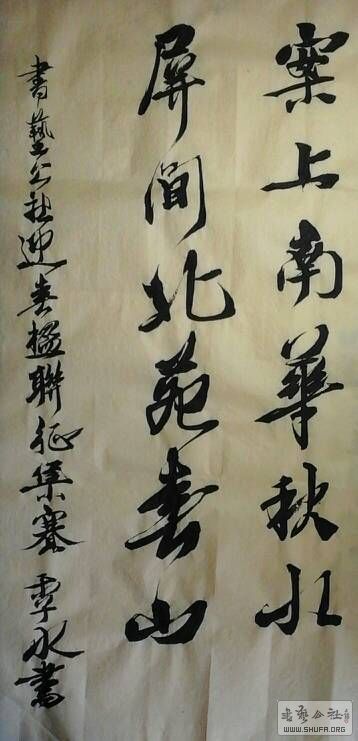 案上南華秋水
屏間北苑春山
書藝公社迎春楹聯征集賽 李書
书艺公社
WWW.SHUFA.ORG